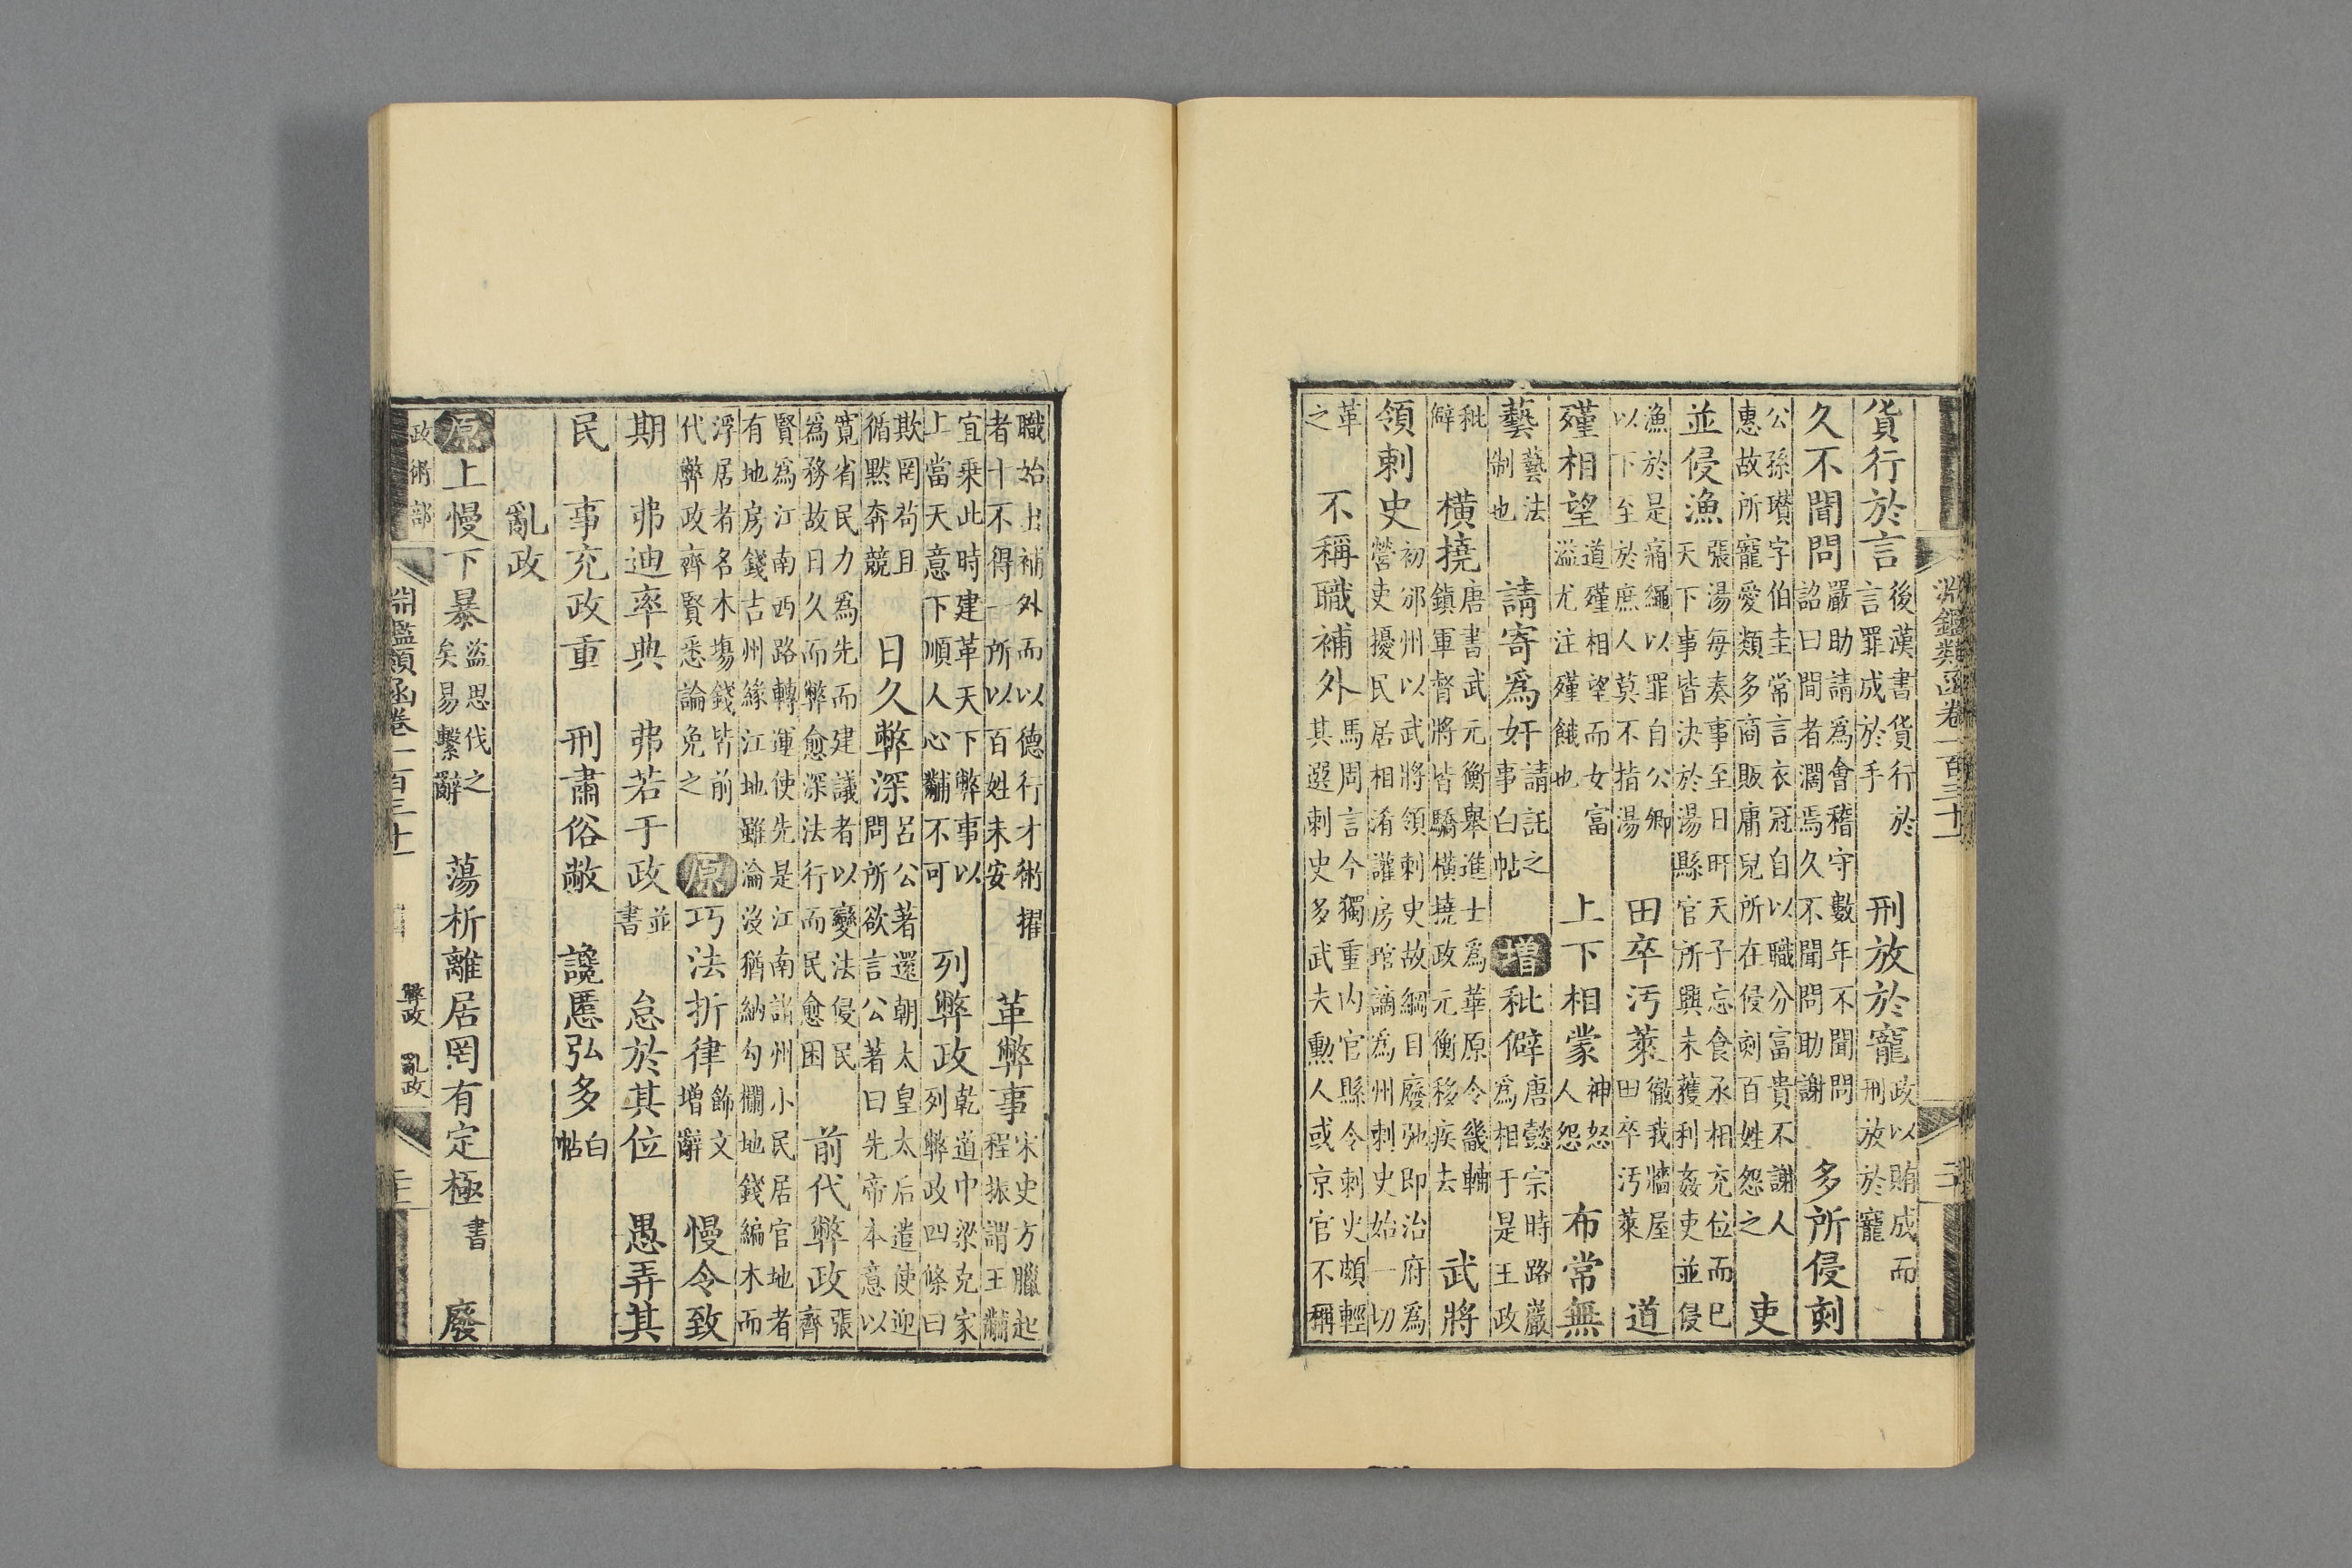 淵鑑類函卷一百三十一
貨行於言後漢書貨行於言罪成於手 刑放於寵政以賄成而刑放於寵
久不聞問嚴助請爲會稽守數年不聞問詔曰間者濶焉久不聞問助謝 多所侵刻
公孫瓚字伯圭常言衣冠自以職分富貴不謝人惠故所寵愛類多商販庸兒所在侵刻百姓怨之 吏
並侵漁張湯每奏事至日旰天子忘食丞相充位而已天下事皆決於湯縣官所興未獲利姦吏並侵
漁於是痛繩以罪自公卿以下至於庶人莫不指湯 田卒汚萊徹我牆屋田卒汚萊 道
殣相望道殣相望而女富溢尤注殣餓也 上下相蒙神怒人怨 布常無
藝藝法制也 請寄爲奸請託之事白帖 增秕僻唐懿宗時路巖爲相于是王政
秕僻 橫撓唐書武元衡舉進士爲華原令畿輔鎮軍督將皆驕橫撓政元衡移疾去 武將
領刺史初邠州以武將領刺史故綱目廢弛即治府爲營吏擾民居相淆讙房琯謫為州刺史始一切
革之 不稱職補外馬周言今獨重內官縣令刺史頗輕其選刺史多武夫勲人或京官不稱
職始出補外而以德行才術擢者十不得一所以百姓未安 革弊事宋史方臘起程振謂王黼
宜乗此時建革天下弊事以上當天意下順人心黼不可 列弊政乾道中梁克家列弊政四條曰
欺罔苟且循黙奔競 日久弊深呂公著還朝太皇太后遣使迎問所欲言公著曰先帝本意以
寛省民力爲先而建議者以變法侵民爲務故日久而弊愈深法行而民愈困 前代弊政張齊
賢爲江南西路轉運使先是江南諸州小民居官地者有地房錢吉州緣江地雖淪沒猶納勾欄地錢編木而
浮居者名木塲錢皆前代弊政齊賢悉論免之 原巧法折律飾文增辭 慢令致
期 弗迪率典 弗若于政並書 怠於其位 愚弄其
民 事充政重 刑肅俗敝 讒慝弘多白帖
亂政
原上慢下暴盜思伐之矣易繫辭 蕩析離居罔有定極書 廢
政術部 淵鑑類函卷一百三十一 弊政 亂政